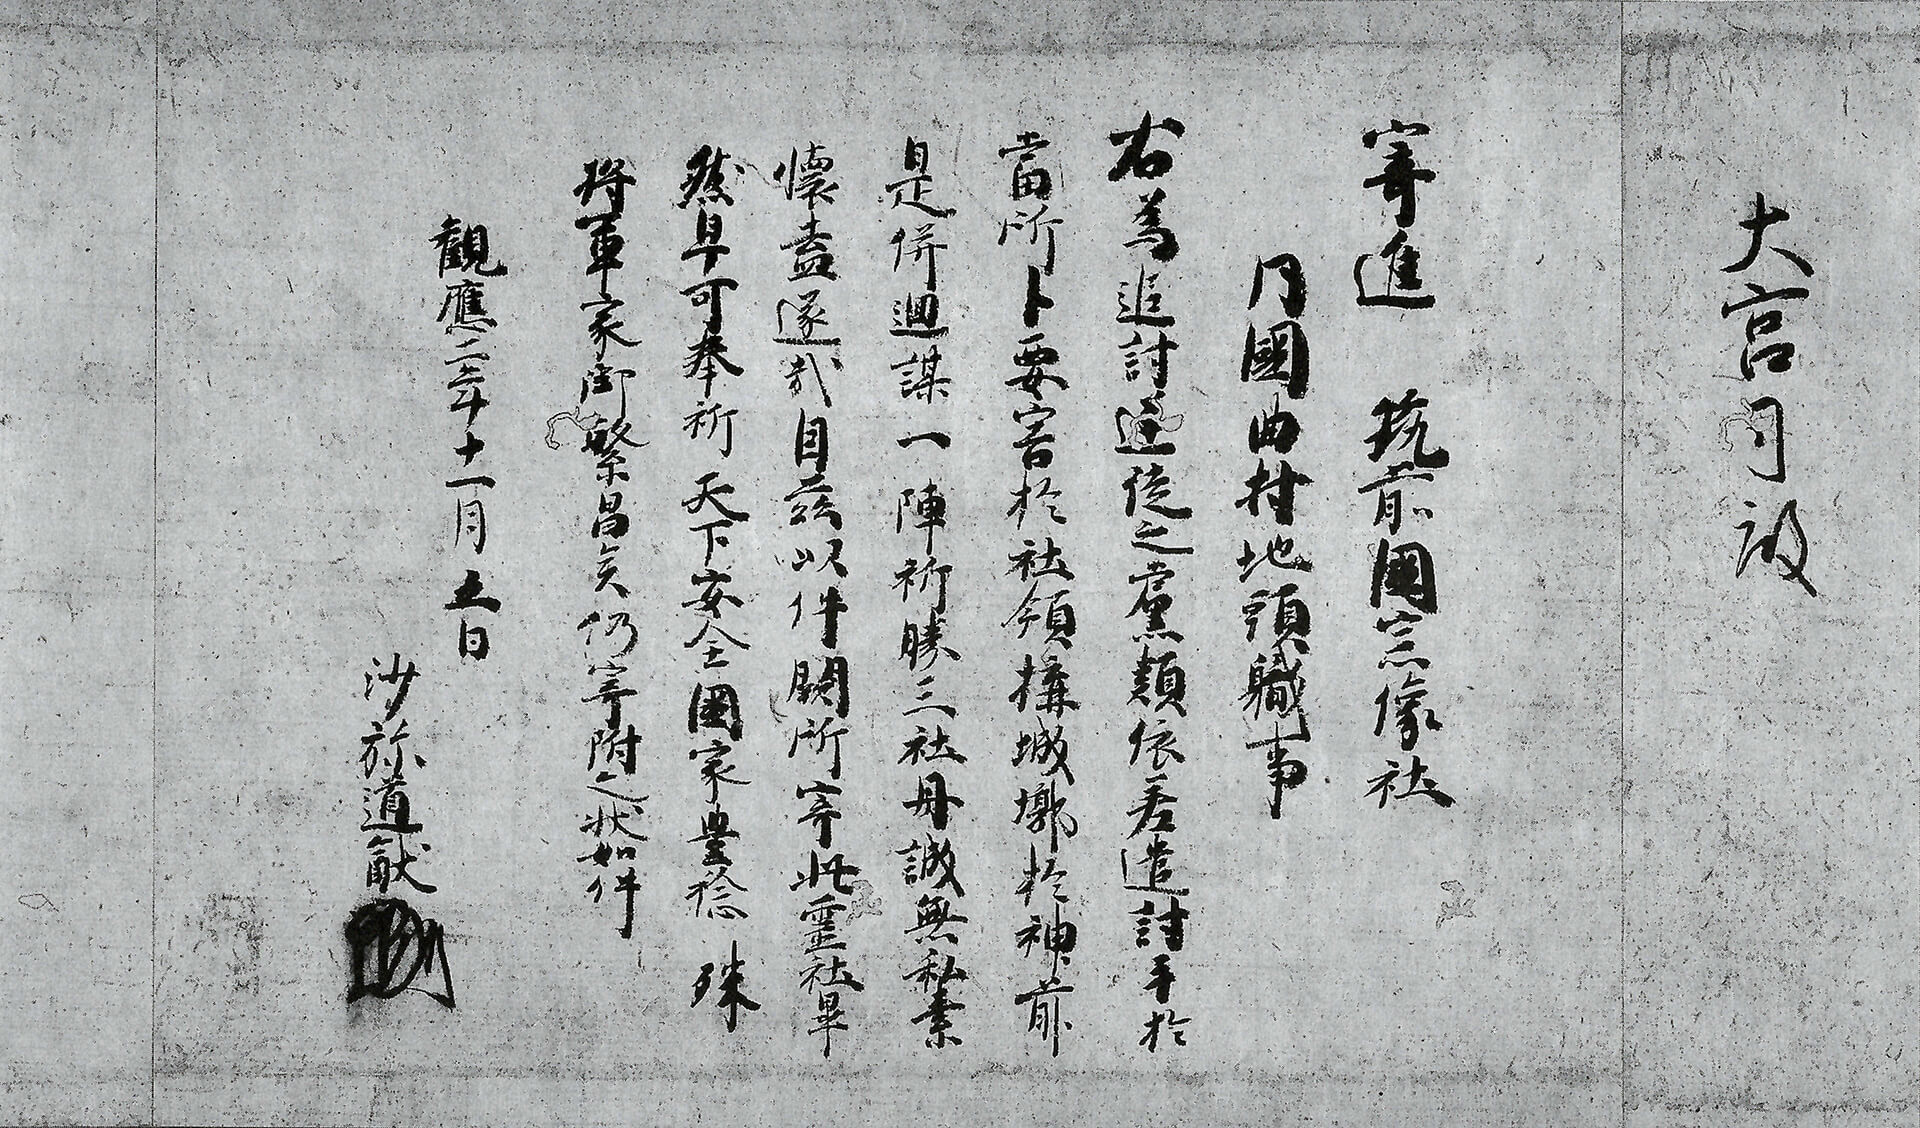 大宮司殿
寄進 筑前國宗像社
同國曲村地頭職事
右為追討凶徒之党類依差遣討手於
當所卜要害於社領搆城墎於神前
是併廻謀一陣祈勝三社丹誠無私素
懐盍遂哉自茲以件闕所寄此霊社畢
然早可奉祈天下安全國家豊稔殊
将軍家御繁昌矣仍寄附之状如件
觀應二年十一月五日
沙弥道猷